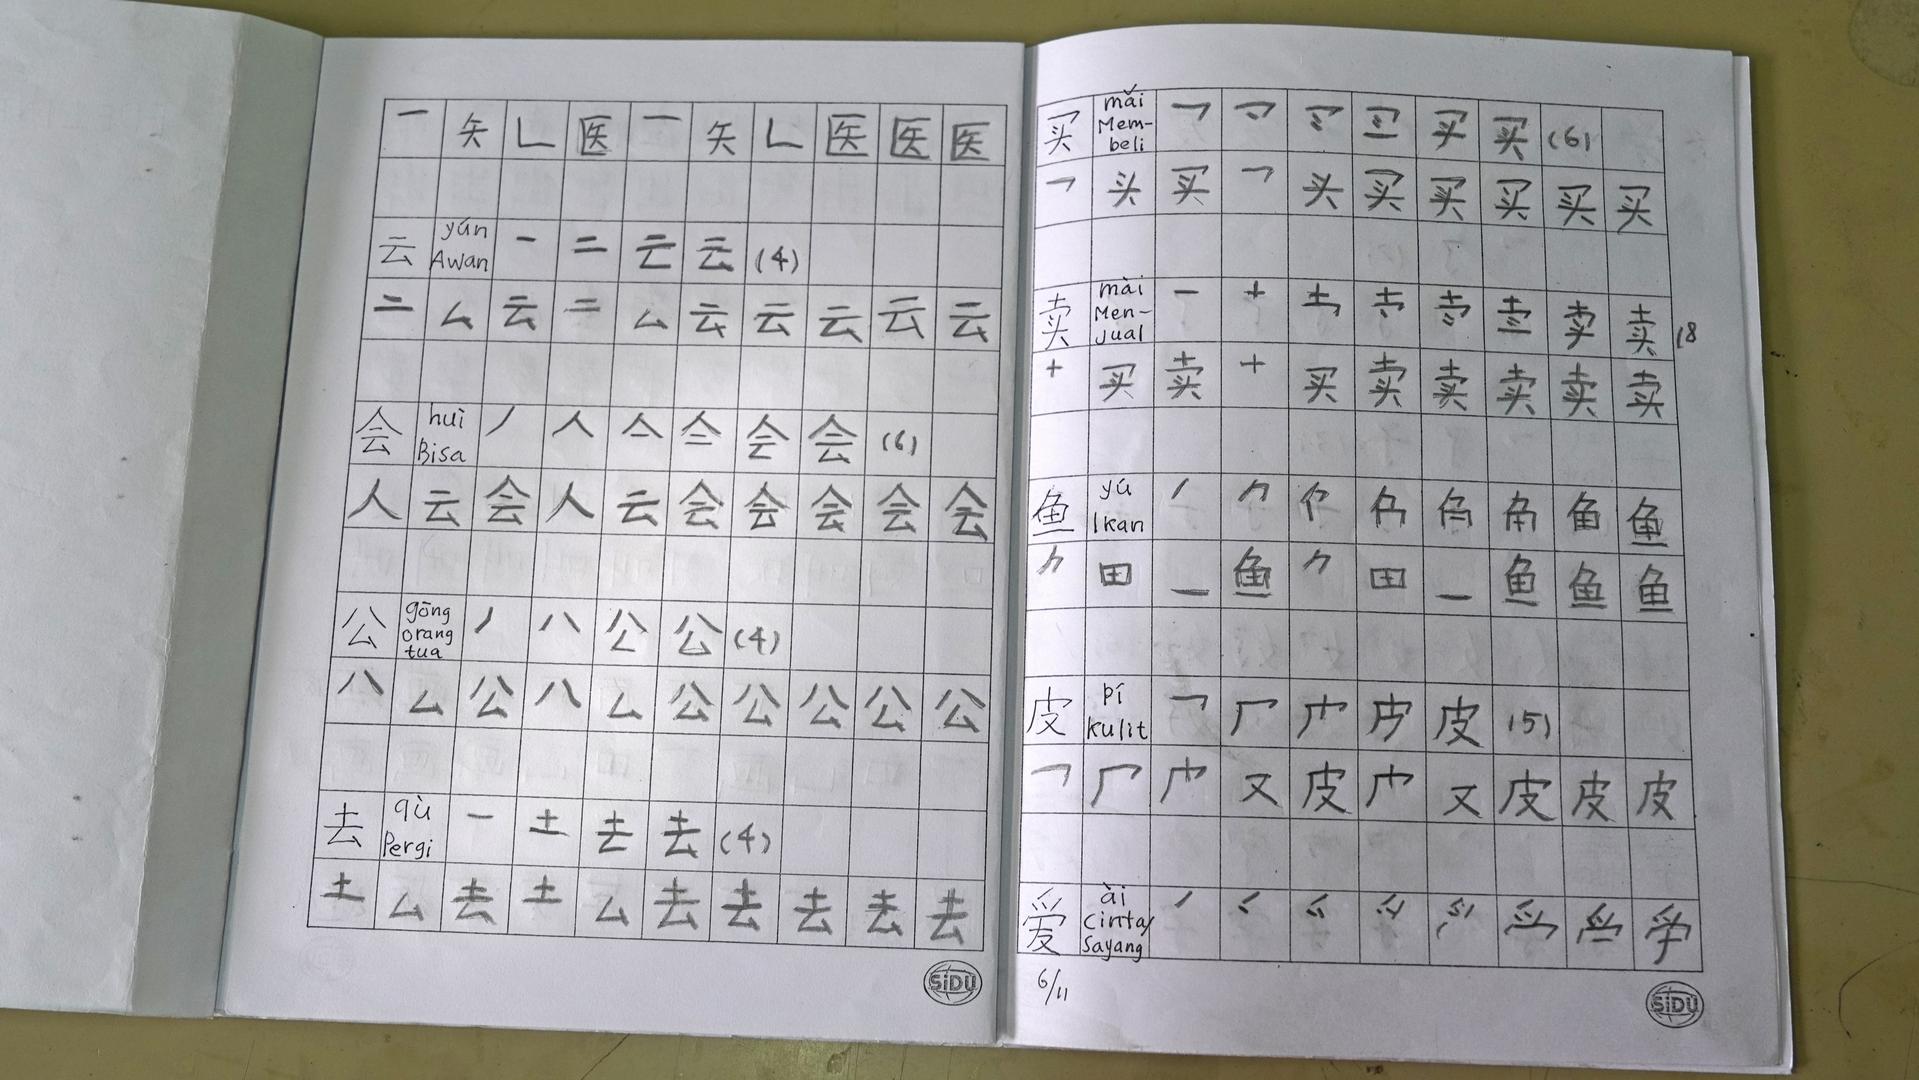 一 矢 ㄴ 医 一 矢 ㄴ 医 医 医
云 yún Awan 一 二 云 云 (4)
二 厶 云 二 厶 云 云 云 云 云
会 huì Bisa 丿 人 亼 会 (6)
人 云 会 人 云 会 会 会 会 会
公 gōng orang tua 丿 八 公 公 (4)
八 厶 公 八 厶 公 公 公 公 公
去 qù Pergi 一 土 去 去 (4)
土 厶 去 土 厶 去 去 去 去 去
SiDU
买 mǎi Mem-beli 乛 买 买 (6)
乛 头 买 乛 头 买 买 买 买 买
卖 mài Men-Jual 一 十 卖 卖 (8
十 买 卖 十 买 卖 卖 卖 卖 卖
鱼 yú Ikan 丿 ⺈ 角 鱼 鱼
⺈ 田 一 鱼 ⺈ 田 一 鱼 鱼 鱼
皮 pí kulit 乛 厂 皮 (5)
乛 厂 又 皮 又 皮 皮 皮
爱 ài Cinta/Sayang 丿
6/11
SiDU